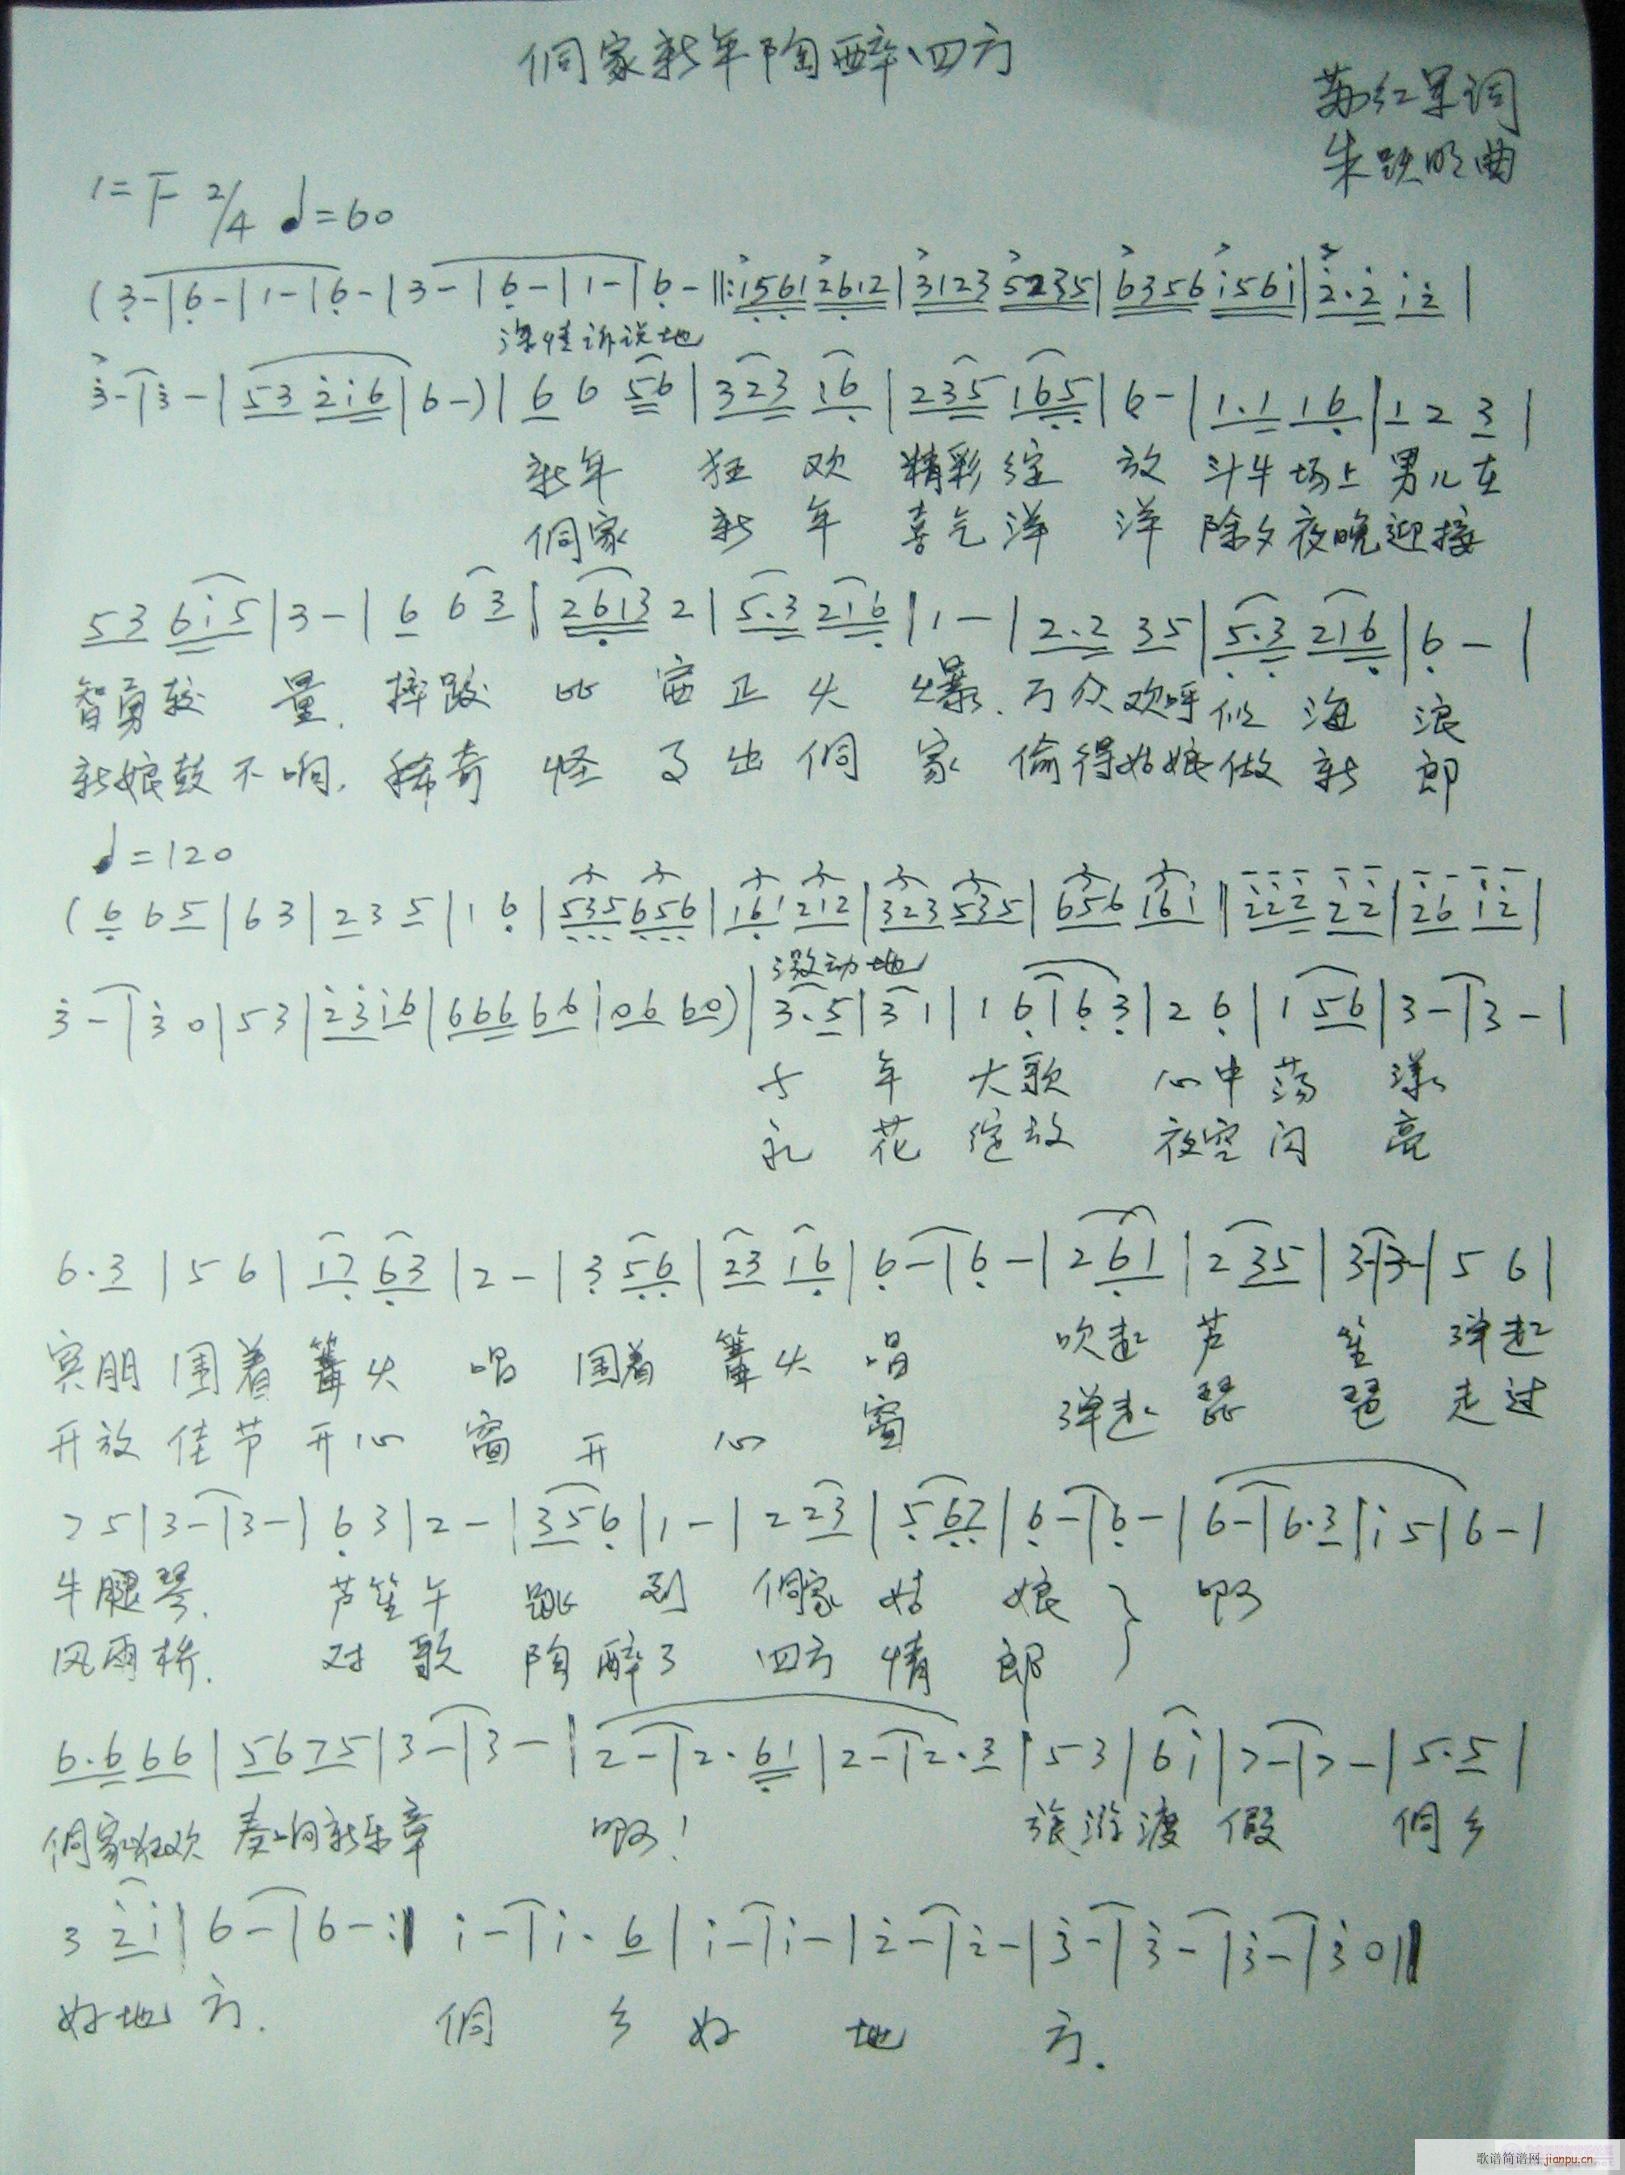 侗家新年陶醉四方
苏红军词
朱跃明曲
1=F 2/4 ♩=60
(3-|6-|1-|6-|3-|6-|1-|6-‖:1561 2612|3123 5235|6356 i56i|2·2 i2|
深情诉说地
3-|3-|53 2i6|6-)|6 6 56|323 16|235 165|6-|1·1 16|1 2 3|
新年 狂 欢 精彩绽 放 斗牛场上男儿在
侗家 新 年 喜气洋 洋 除夕夜晚迎接
53 6i5|3-|6 6 3|2613 2|5·3 216|1-|2·2 35|5·3 216|6-|
智勇较 量. 摔跤 比 赛正火 爆. 万众欢呼似 海 浪
新娘鼓不响. 稀奇 怪 了出侗 家 偷得姑娘做 新 郎
♩=120
(6 6 5|6 3|2 3 5|1 6|535 656|161 212|323 535|656 i6i‖222 22|26 i2|
激动地
3-|3 0|53|23i6|666 66|06 60)|3·5|3 1|1 6|6 3|2 6|1 56|3-|3-|
千 年 大歌 心中荡 漾
礼 花 绽放 夜空闪 亮
6·3|5 6|17 63|2-|3 56|23 16|6-|6-|2 61|2 35|3-|3-|5 6|
宾朋 围着 篝火 唱 围着 篝火 唱 吹起 芦 笙 弹起
开放 佳节 开心 窗 开 心 窗 弹起 琵 琶 走过
7 5|3-|3-|6 3|2-|356|1-|2 23|5 67|6-|6-|6-|6·3|i 5|6-|
牛腿琴. 芦笙午 跳 到 侗家 姑 娘 } 啊
风雨桥. 对 歌 陶 醉了 四方 情 郎
6·6 66|56 75|3-|3-|2-|2·61|2-|2·3|5 3|6 i|7-|7-|5·5|
侗家狂欢 奏响新乐章 啊! 旅游渡 假 侗乡
3 2i|6-|6-:‖ i-|i·6|i-|i-|2-|2-|3-|3-|3-|3 0‖
好地 方. 侗 乡 好 地 方.
歌谱简谱网 jianpu.cn